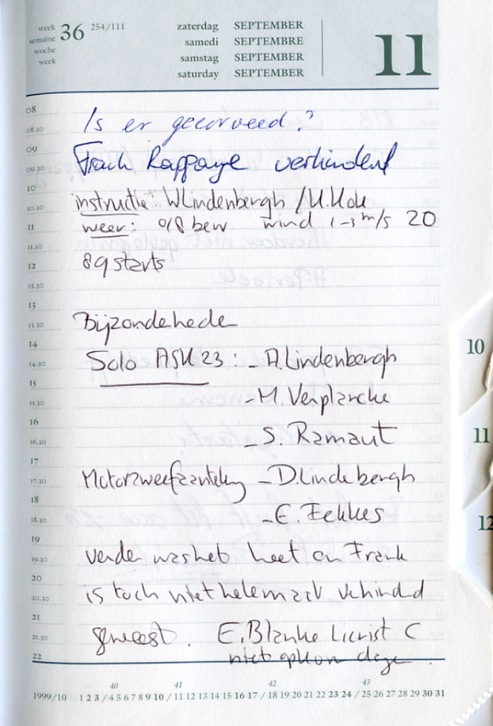 week
semaine
woche
week
36 254/111
zaterdag SEPTEMBER
samedi SEPTEMBRE
samstag SEPTEMBER
saturday SEPTEMBER
11
08
08.30
Is er gecorveed?
09
09.30
Frank verhinderd
10
10.30
instructie: W Lindenbergh /
11
weer: 0/8 bew wind 1-3 m/s 20
11.30
12
89 starts
12.30
13
13.30
Bijzonderhede
14
14.30
Solo ASK 23: - A. Lindenbergh
15
15.30
- M. Verplancke
16
16.30
- S. Ramaut
17
17.30
- D. Lindebergh
18
18.30
- E. Fekkes
19
19.30
verder was het heet en Frank
20
20.30
is toch niet helemaal verhinderd
21
21.30
geweest. E. Blanke C
22
niet
10
11
12
40 41 42 43
1999/10 1 2 3 / 4 5 6 7 8 9 10 / 11 12 13 14 15 16 17 / 18 19 20 21 22 23 24 / 25 26 27 28 29 30 31